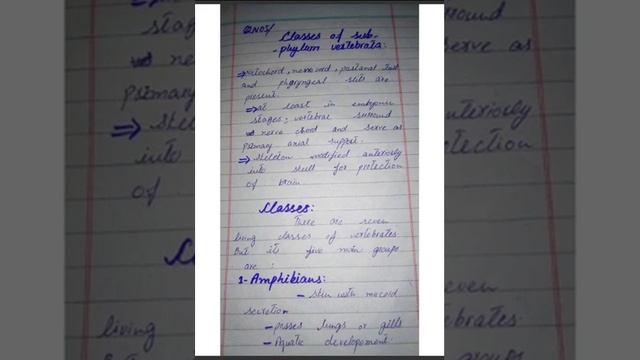 QNO5/
Classes of sub-
-phylum vertebrata:
⇒ Notochord, nerve cord, postanal tail
and pharyngeal slits are
present.
⇒ at least in embryonic
stages; vertebrae surround
nerve chord and serve as
primary axial support.
⇒ skeleton modified anteriorly
into skull for protection
of brain
Classes:
There are seven
living classes of vertebrates
But its five main groups
are :
1- Amphibians:
- skin with mucoid
secretion
- posses lungs or gills
- Aquatic development.